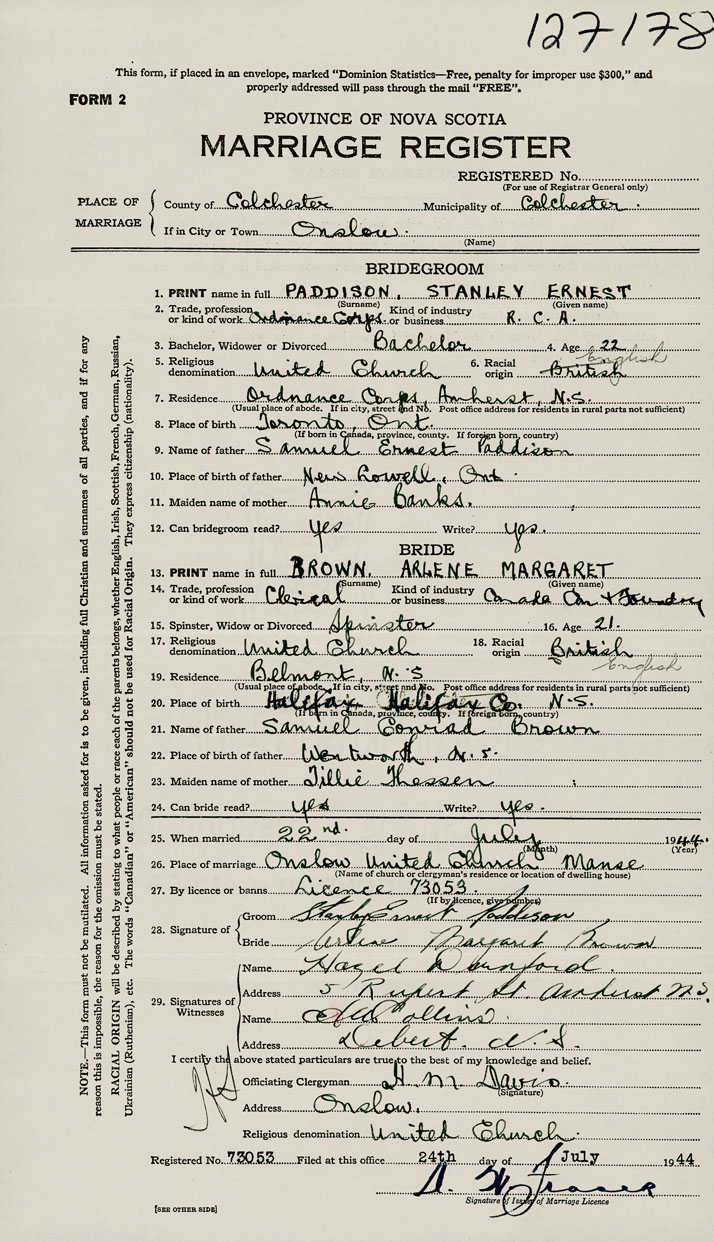 127178
This form, if placed in an envelope, marked "Dominion Statistics—Free, penalty for improper use $300," and
properly addressed will pass through the mail "FREE".
FORM 2
PROVINCE OF NOVA SCOTIA
MARRIAGE REGISTER
REGISTERED No.
(For use of Registrar General only)
PLACE OF MARRIAGE
County of Colchester Municipality of Colchester.
If in City or Town Onslow.
(Name)
BRIDEGROOM
1. PRINT name in full PADDISON, STANLEY ERNEST
(Surname) (Given name)
2. Trade, profession or kind of work Ordnance Corps. Kind of industry or business R. C. A.
3. Bachelor, Widower or Divorced Bachelor 4. Age 22
English
5. Religious denomination United Church 6. Racial origin British
7. Residence Ordnance Corps, Amherst, N.S.
(Usual place of abode. If in city, street and No. Post office address for residents in rural parts not sufficient)
8. Place of birth Toronto, Ont.
(If born in Canada, province, county. If foreign born, country)
9. Name of father Samuel Ernest Paddison
10. Place of birth of father New Lowell, Ont.
11. Maiden name of mother Annie Banks.
12. Can bridegroom read? yes Write? yes.
BRIDE
13. PRINT name in full BROWN, ARLENE MARGARET
(Surname) (Given name)
14. Trade, profession or kind of work Clerical Kind of industry or business Canada Car & Foundry
15. Spinster, Widow or Divorced Spinster 16. Age 21.
17. Religious denomination United Church 18. Racial origin British
English
19. Residence Belmont, N.S
(Usual place of abode. If in city, street and No. Post office address for residents in rural parts not sufficient)
20. Place of birth Halifax Halifax Co. N.S.
(If born in Canada, province, county. If foreign born, country)
21. Name of father Samuel Conrad Brown
22. Place of birth of father Wentworth, N.S.
23. Maiden name of mother Tillie Thessen
24. Can bride read? yes Write? yes.
25. When married 22nd. day of July 1944.
(Month) (Year)
26. Place of marriage Onslow United Church Manse
(Name of church or clergyman's residence or location of dwelling house)
27. By licence or banns Licence 73053.
(If by licence, give number)
28. Signature of
Groom Stanley Ernest Paddison
Bride Arlene Margaret Brown
29. Signatures of Witnesses
Name Hazel Durnford.
Address 5 Rupert St. Amherst N.S.
Name Collins.
Address Debert. N.S.
I certify the above stated particulars are true to the best of my knowledge and belief.
Officiating Clergyman H. M. Davis.
(Signature)
Address Onslow.
Religious denomination United Church.
Registered No. 73053 Filed at this office 24th day of July 1944
D. W. Fraser
Signature of Issuer of Marriage Licence
[SEE OTHER SIDE]
NOTE.—This form must not be mutilated. All information asked for is to be given, including full Christian and surnames of all parties, and if for any
reason this is impossible, the reason for the omission must be stated.
RACIAL ORIGIN will be described by stating to what people or race each of the parents belongs, whether English, Irish, Scottish, French, German, Russian,
Ukrainian (Ruthenian), etc. The words "Canadian" or "American" should not be used for Racial Origin. They express citizenship (nationality).